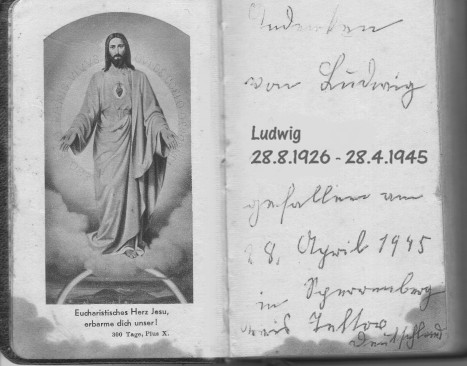 Eucharistisches Herz Jesu,
erbarme dich unser!
300 Tage, Pius X.
Andenken
von Ludwig
Ludwig
28.8.1926 - 28.4.1945
gefallen am
28. April 1945
in Sperenberg
Kreis Teltow
Deutschland